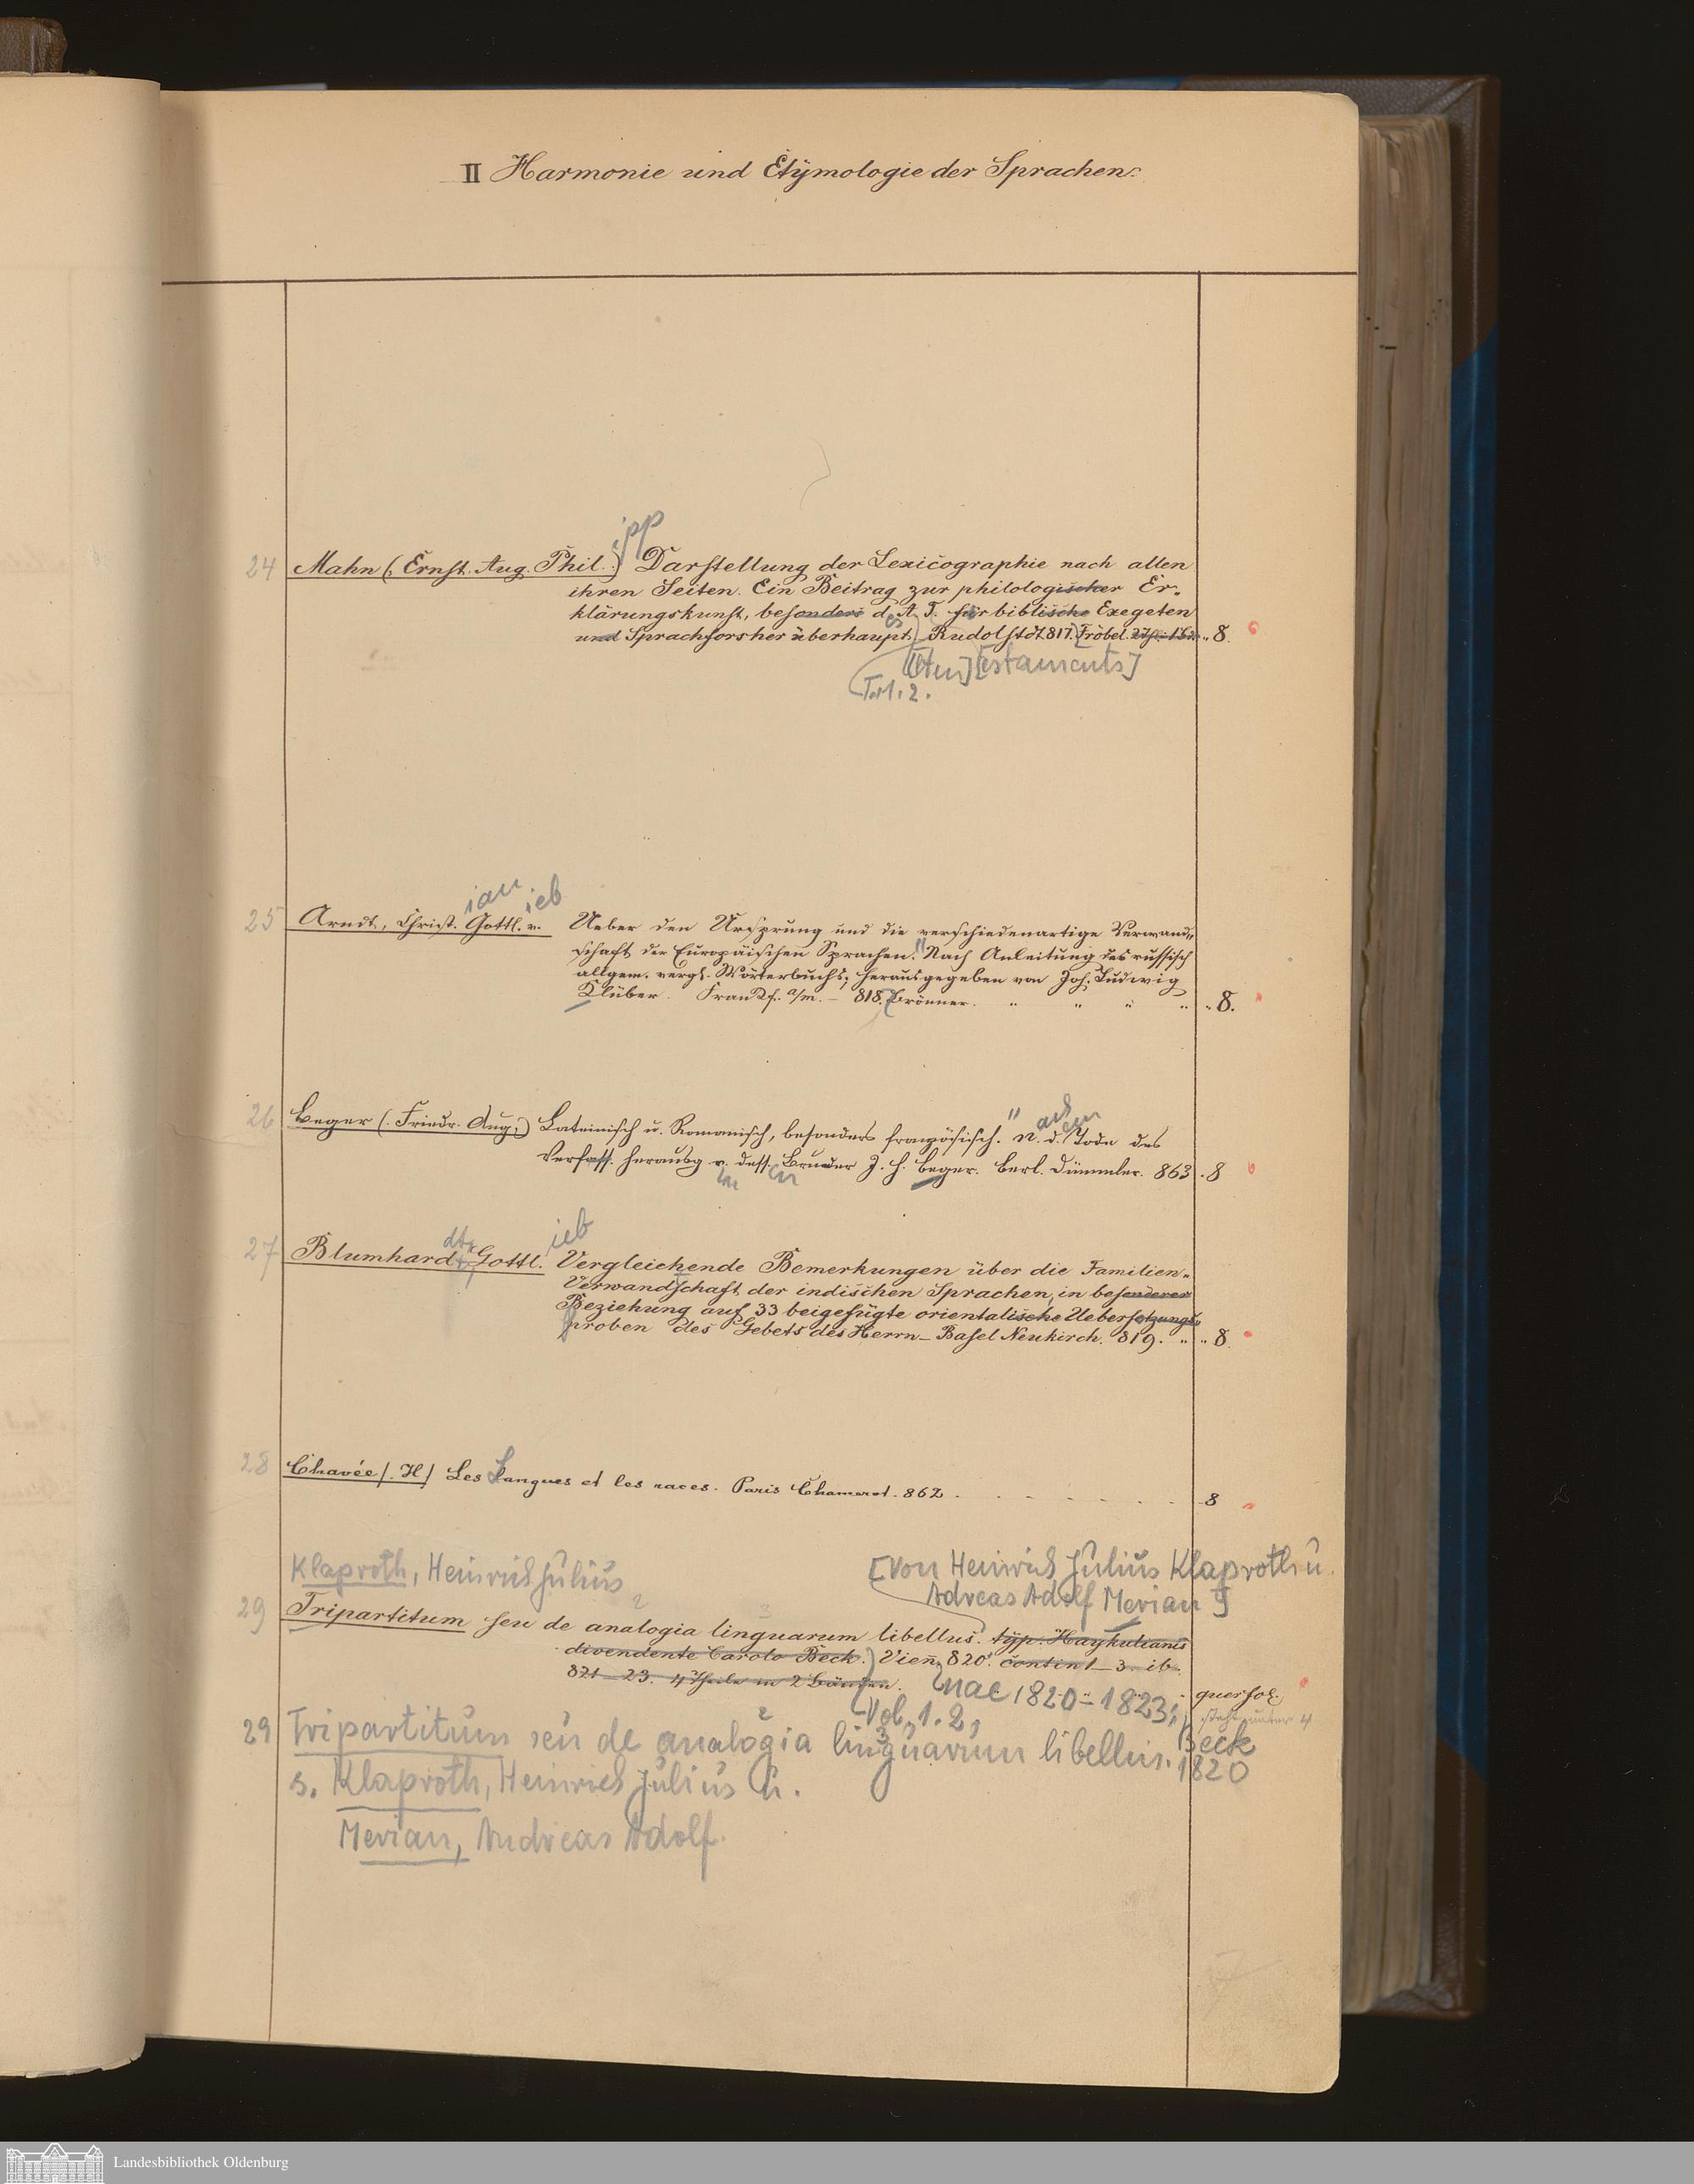 II Harmonie und Etymologie der Sprachen.
ipp
24 Mahn (Ernst. Aug. Phil.) Darstellung der Lexicographie nach allen
ihren Seiten. Ein Beitrag zur philologischer Er-
klärungskunst, besonders des A. T. für biblische Exegeten
und Sprachforscher überhaupt. Rudolstdt 817. Fröbel. 8.
[lten] T[estaments]
T. 1. 2.
ian ieb
25 Arndt, Christ. Gottl. v. Ueber den Ursprung und die verschiedenartige Verwand„
schaft der Europäischen Sprachen. Nach Anleitung des russisch
allgem. vergl. Wörterbuchs; herausgegeben von Joh. Ludwig
Klüber. Frankf. a/m. – 818. Brönner. „ „ „ „ 8.
ach em
26 Beger (Friedr. Aug.) Lateinisch u. Romanisch, besonders französisch. N. d. Tode des
Verfass. herausg v. dess. Bruder J. H. Beger. Berl. Dümmler. 863. 8
on en
dt, ieb
27 Blumhardt, Gottl. Vergleichende Bemerkungen über die Familien-
Verwandschaft der indischen Sprachen, in besonderer
Beziehung auf 33 beigefügte orientalische Uebersetzungs„
proben des Gebets des Herrn – Basel Neukirch. 819. „ „ 8.
28 Chavée (H) Les Langues et les races. Paris Chamerot. 862 . . . . . . 8
Klaproth, Heinrich Julius [Von Heinrich Julius Klaproth u.
Adreas Adolf Merian]
29 Tripartitum seu de analogia linguarum libellus. typ. Haykulianis
divendente Carolo Beck. Vien. 820. contin 1–3. ib.
821–23. 4 Theile in 2 Bänden. nae 1820–1823; querfol.
Vol. 1. 2, steht unter 4
29 Tripartitum seu de analogia linguarum libellus. Beck
1820
s. Klaproth, Heinrich Julius u.
Merian, Andreas Adolf.
Landesbibliothek Oldenburg